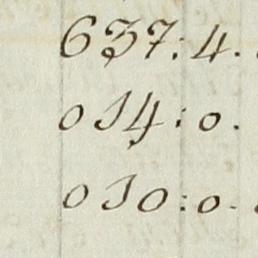 637:4.
014:0.
010:0.